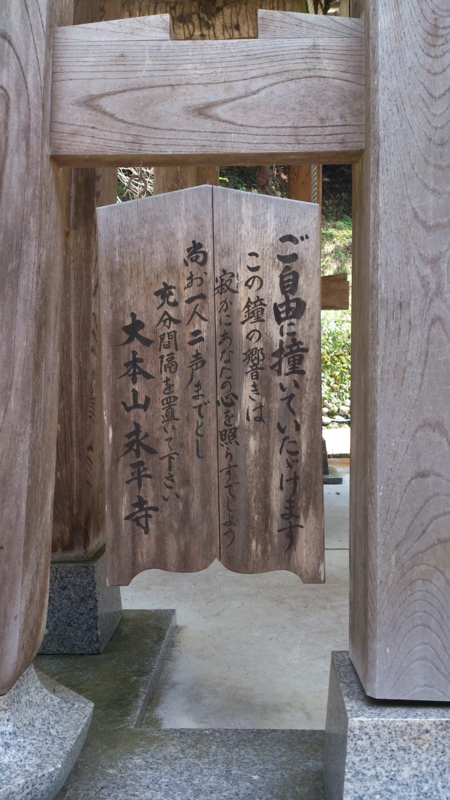 ご自由に撞いていたゞけます
この鐘の響きは
寂かにあなたの心を照らすでしょう
尚お一人二声までとし
充分間隔を置いて下さい
大本山永平寺